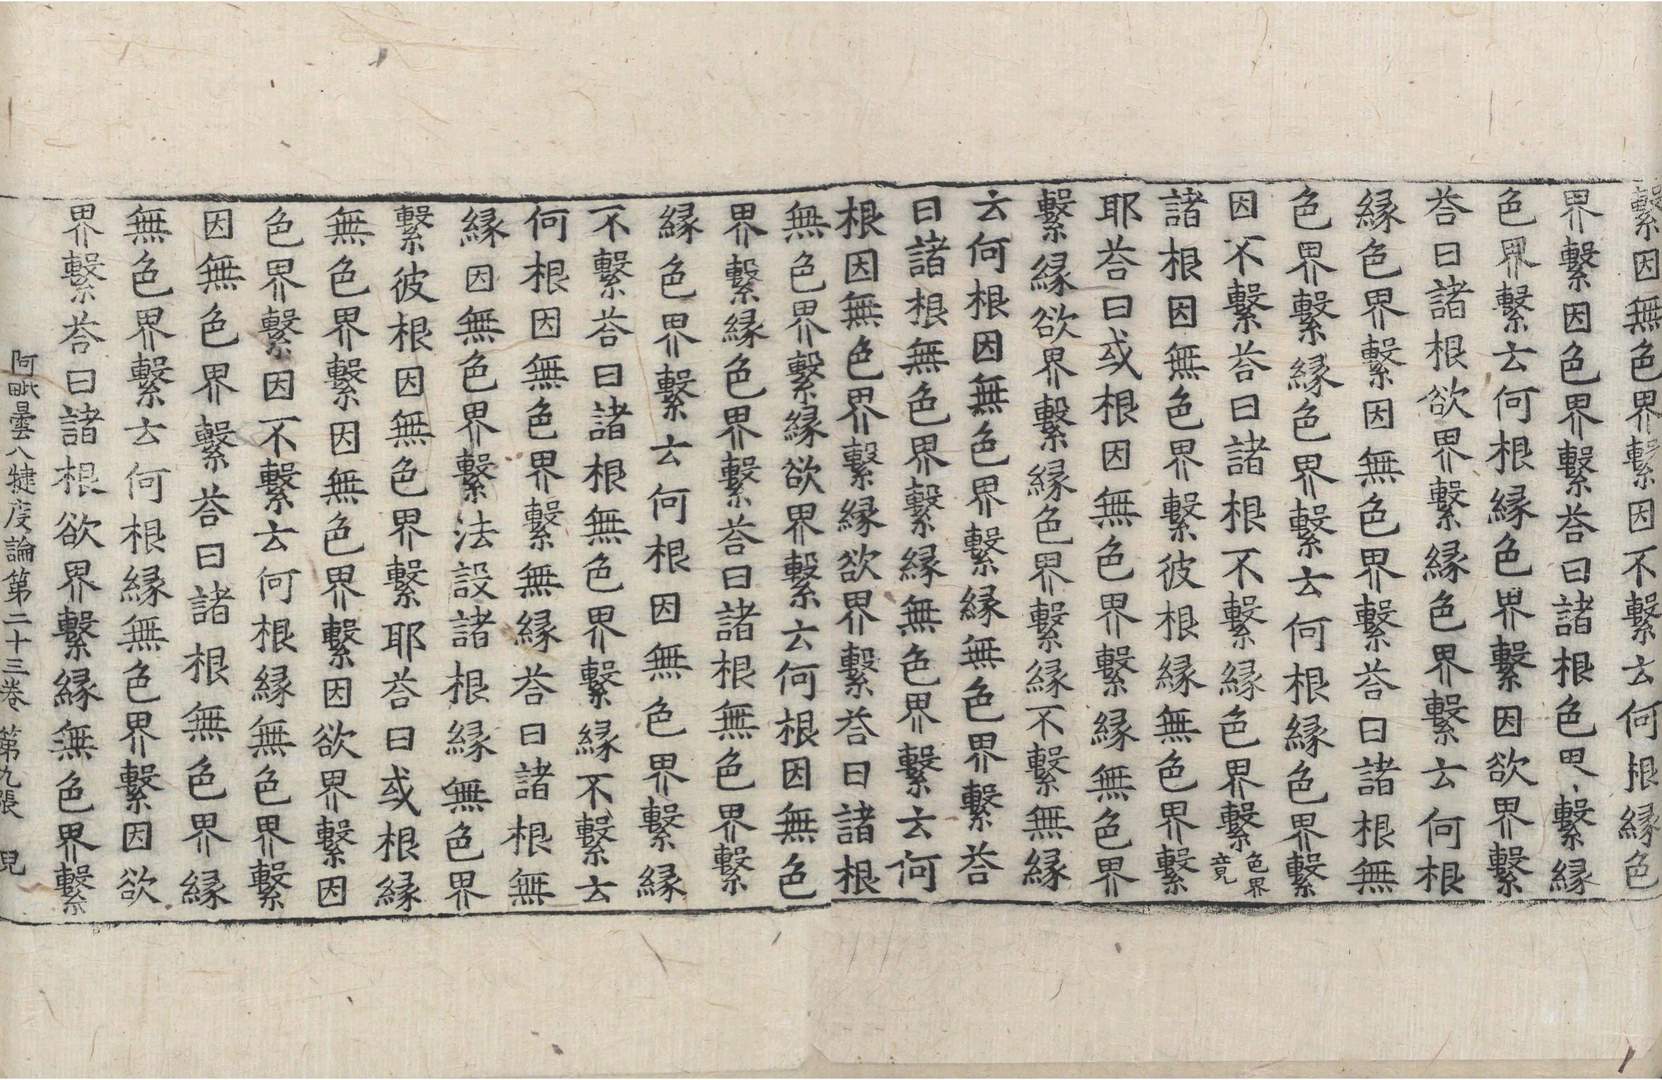 繫因無色界繫因不繫云何根縁色
界繫因色界繫荅曰諸根色界繫縁
色界繫云何根縁色界繫因欲界繫
荅曰諸根欲界繫縁色界繫云何根
縁色界繫因無色界繫荅曰諸根無
色界繫縁色界繫云何根縁色界繫
因不繫荅曰諸根不繫縁色界繫色界竟
諸根因無色界繫彼根縁無色界繫
耶荅曰或根因無色界繫縁無色界
繫縁欲界繫縁色界繫縁不繫無縁
云何根因無色界繫縁無色界繫荅
曰諸根無色界繫縁無色界繫云何
根因無色界繫縁欲界繫荅曰諸根
無色界繫縁欲界繫云何根因無色
界繫縁色界繫荅曰諸根無色界繫
縁色界繫云何根因無色界繫縁
不繫荅曰諸根無色界繫縁不繫云
何根因無色界繫無縁荅曰諸根無
縁因無色界繫法設諸根縁無色界
繫彼根因無色界繫耶荅曰或根縁
無色界繫因無色界繫因欲界繫因
色界繫因不繫云何根縁無色界繫
因無色界繫荅曰諸根無色界縁
無色界繫云何根縁無色界繫因欲
界繫荅曰諸根欲界繫縁無色界繫
阿毗曇八犍度論第二十三卷 第九張 皃